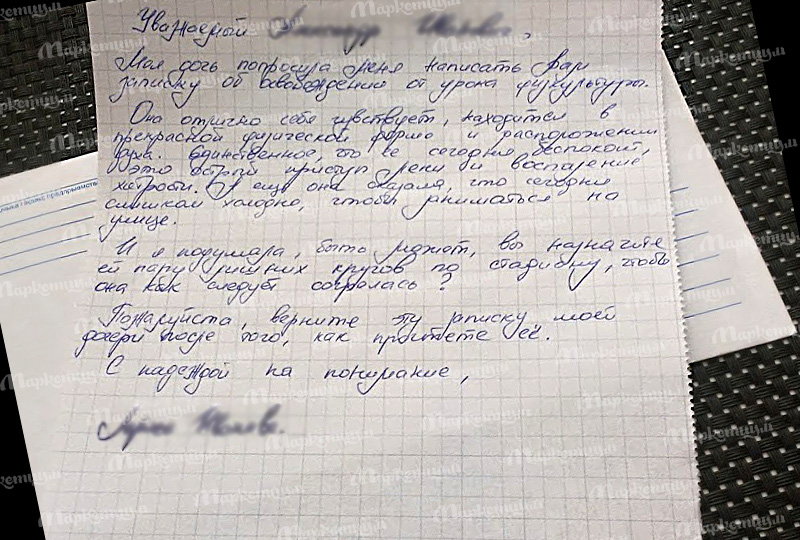 Уважаемый
Моя дочь попросила меня написать Вам
записку об освобождении от урока физкультуры.
Она отлично себя чувствует, находится в
прекрасной физической форме и расположении
духа. Единственное, что её сегодня беспокоит,
это острый приступ лени и воспаление
хитрости. И ещё она сказала, что сегодня
слишком холодно, чтобы заниматься на
улице.
И я подумала, быть может, вы назначите
ей пару лишних кругов по стадиону, чтобы
она как следует согрелась?
Пожалуйста, верните эту записку моей
дочери после того, как прочтете её.
С надеждой на понимание,
Маркетиум